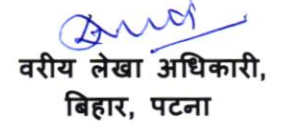 वरीय लेखा अधिकारी,
बिहार, पटना